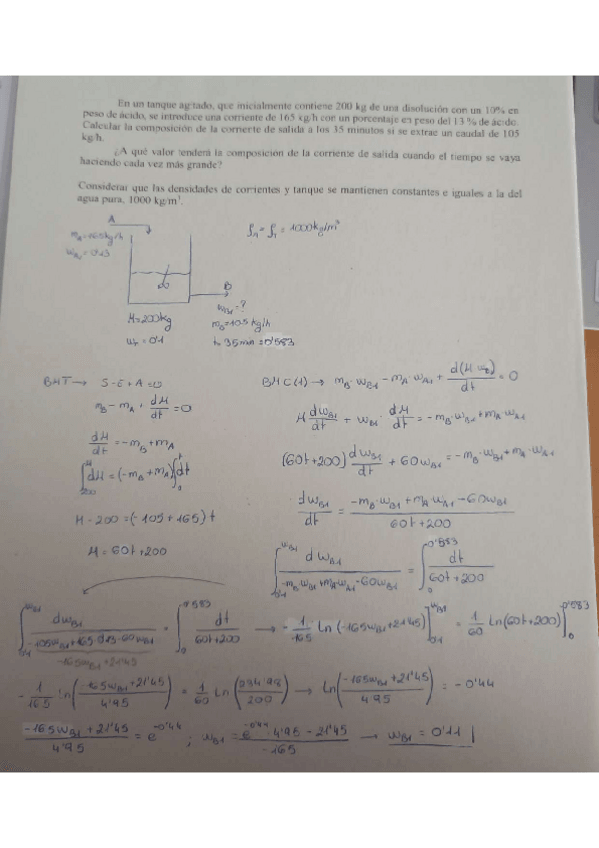 En un tanque agitado, que inicialmente contiene 200 kg de una disolución con un 10% en
peso de ácido, se introduce una corriente de 165 kg/h con un porcentaje en peso del 13 % de ácido.
Calcular la composición de la corriente de salida a los 35 minutos si se extrae un caudal de 105
kg/h.
¿A qué valor tenderá la composición de la corriente de salida cuando el tiempo se vaya
haciendo cada vez más grande?
Considerar que las densidades de corrientes y tanque se mantienen constantes e iguales a la del
agua pura, 1000 kg/m³.
A
ṁ_A = 165 kg/h
w_A1 = 0'13
ρ_A = ρ_T = 1000 kg/m³
B
w_B1 = ?
M = 200 kg
ṁ_B = 105 kg/h
w_T = 0'1
t = 35 min = 0'583
BMT → S - E + A = 0
ṁ_B - ṁ_A + dM/dt = 0
dM/dt = -ṁ_B + ṁ_A
∫_200^M dM = (-ṁ_B + ṁ_A) ∫_0^t dt
M - 200 = (-105 + 165) t
M = 60t + 200
BMC (1) → ṁ_B · w_B1 - ṁ_A · w_A1 + d(M w_B)/dt = 0
M dw_B1/dt + w_B1 · dM/dt = -ṁ_B · w_B1 + ṁ_A · w_A1
(60t+200) dw_B1/dt + 60w_B1 = -ṁ_B · w_B1 + ṁ_A · w_A1
dw_B1/dt = (-ṁ_B · w_B1 + ṁ_A · w_A1 - 60w_B1)/(60t + 200)
∫_0'1^w_B1 dw_B1/(-ṁ_B · w_B1 + ṁ_A · w_A1 - 60w_B1) = ∫_0^0'583 dt/(60t + 200)
∫_0'1^w_B1 dw_B1/(-105w_B1 + 165·0'13 - 60w_B1) = ∫_0^0'583 dt/(60t+200) → -1/165 Ln(-165w_B1 + 21'45)]_0'1^w_B1 = 1/60 Ln(60t+200)]_0^0'583
-165w_B1 + 21'45
-1/165 Ln((-165w_B1 + 21'45)/4'95) = 1/60 Ln(234'98/200) → Ln((-165w_B1 + 21'45)/4'95) = -0'44
(-165w_B1 + 21'45)/4'95 = e^-0'44 ; w_B1 = (e^-0'44 · 4'95 - 21'45)/-165 → w_B1 = 0'11